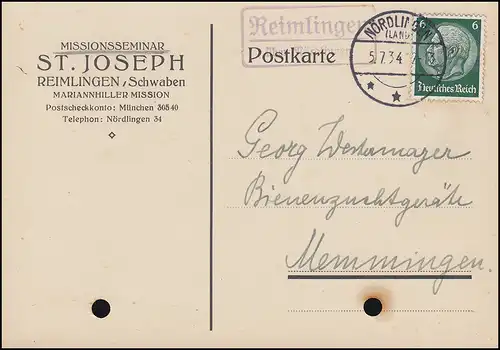 MISSIONSSEMINAR
ST. JOSEPH
REIMLINGEN / Schwaben
MARIANNHILLER MISSION
Postscheckkonto: München 30840
Telephon: Nördlingen 34
Reimlingen
Postkarte
NÖRDLINGEN
(LAND)
5.7.34
6 6
Deutsches Reich
Georg Westermayer
Bienenzuchtgeräte
Memmingen.